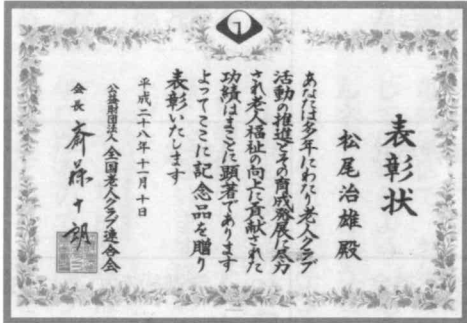 表彰状
松尾治雄殿
あなたは多年にわたり老人クラブ
活動の推進とその育成発展に尽力
され老人福祉の向上に貢献された
功績はまことに顕著であります
よってここに記念品を贈り
表彰いたします
平成二十八年十一月十日
公益財団法人全国老人クラブ連合会
会長 斎藤十朗